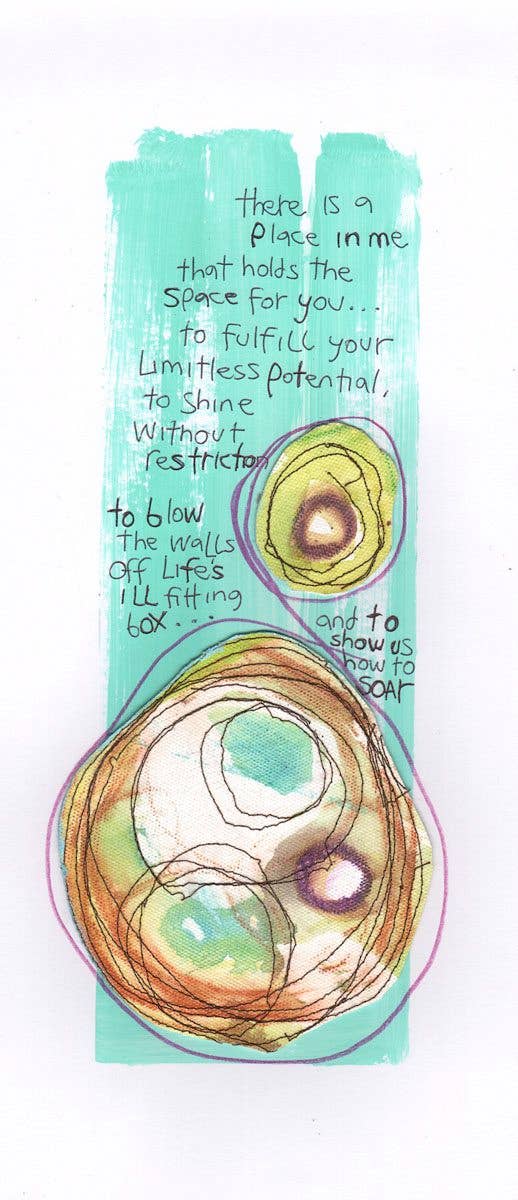 there is a
place in me
that holds the
space for you...
to fulfill your
limitless potential,
to shine
without
restricton
to blow
the walls
off life's
ill fitting
box...
and to
show us
how to
soar